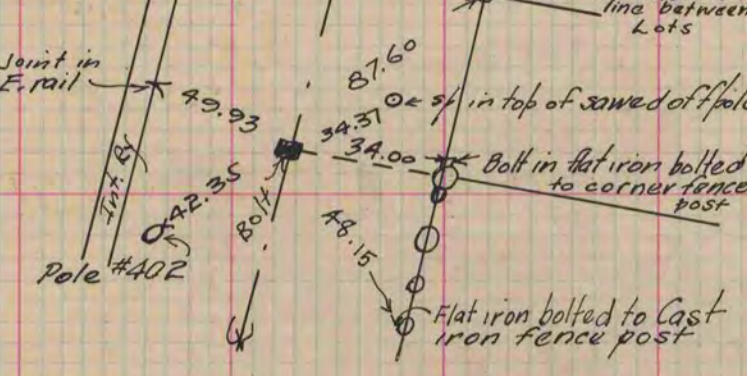 line between
Lots
Joint in
E. rail
87.60
49.93
sp in top of sawed off pole
34.37
34.00
Bolt in flat iron bolted
to corner fence
post
Int. Ry
42.35
Bolt
48.15
Pole #402
Flat iron bolted to Cast
iron fence post